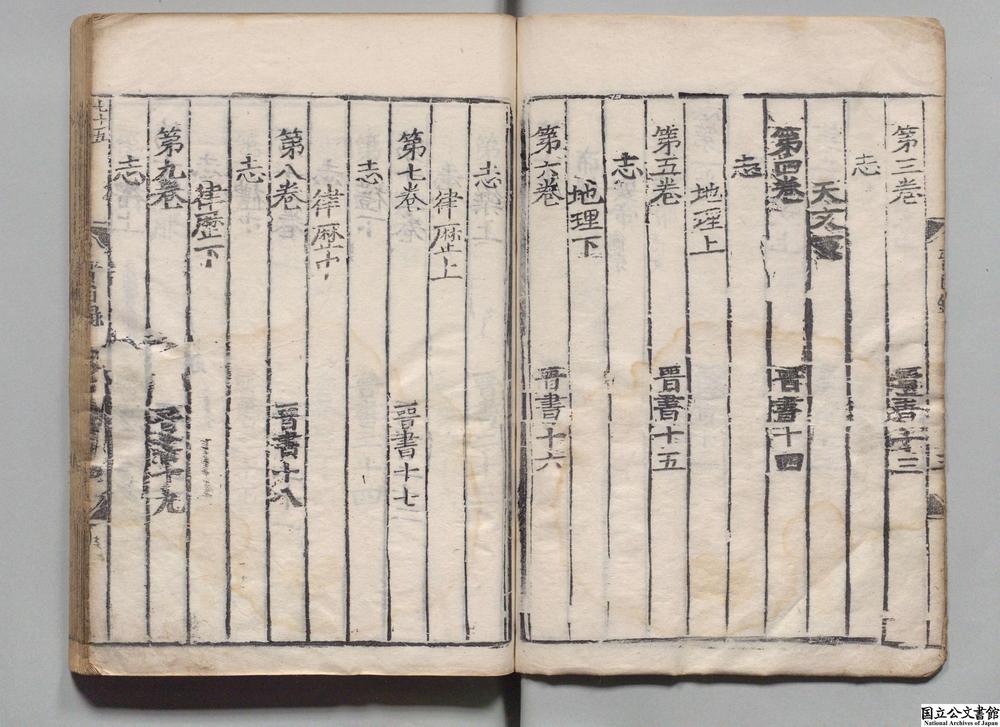 第三卷 晋書十三
志
天文下
第四卷 晋書十四
志
地理上
第五卷 晋書十五
志
地理下
第六卷 晋書十六
志
律歷上
第七卷 晋書十七
志
律歷中
第八卷 晋書十八
志
律歷下
第九卷 晋書十九
志
七十五
目録
国立公文書館
National Archives of Japan